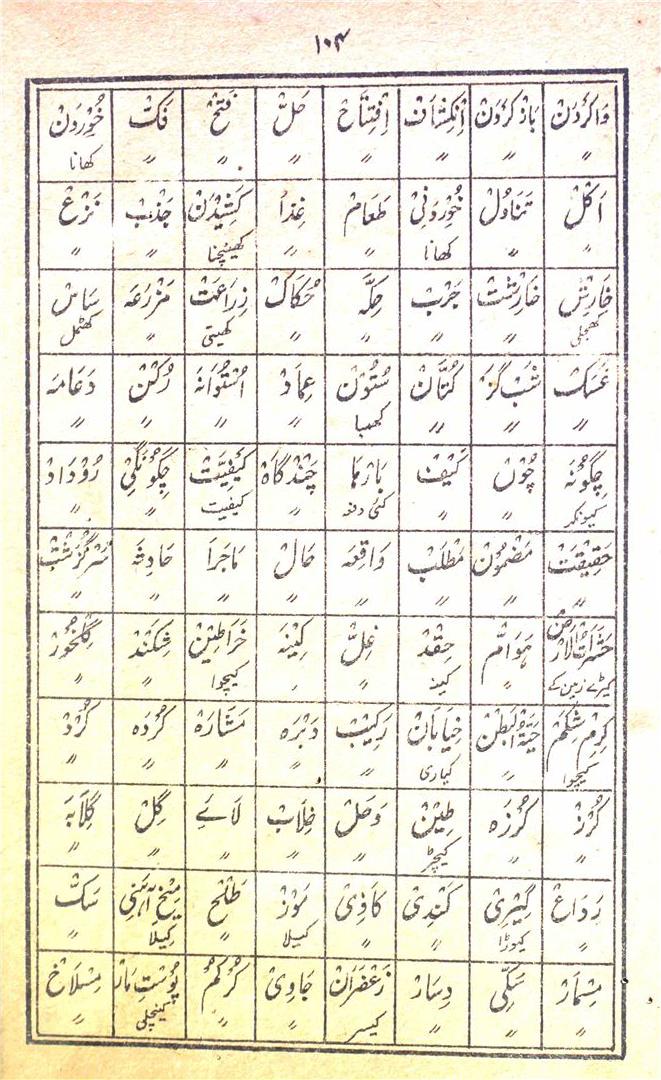 ۱۰۴
وَاکَرْدَنْ بَازْ کَرْدَنْ اِنْکِشَافْ اِفْتِتَاحْ حَلّ فَتْح فَکّ خُوْرْدَنْ
〃 〃 〃 〃 〃 〃 〃 کھانا
اَکْلْ تَنَاوُلْ خُوْرْدَنِیْ طَعَامْ غِذَا کَشِیْدَنْ جَذْبْ نَزْعْ
〃 〃 کھانا 〃 〃 کھینچنا 〃 〃
خَارِشْ خَارِشْتْ جَرَبْ حِکَّہ حُکَاکْ زِرَاعَتْ مَزْرَعَہ سَاسْ
کھجلی 〃 〃 〃 〃 کھیتی 〃 کھٹمل
غَسَکْ شَبْ گَزْ کُتَّانْ سُتُوْنْ عِمَادْ اُسْتُوَانَہ رُکْنْ دَعَامَہ
〃 〃 〃 کھمبا 〃 〃 〃 〃
چِگُوْنَہ چُوْں کَیْفَ بَارْہَا چَنْدْ گَاہْ کَیْفِیَّتْ چِگُوْنَگِیْ رُوْدَادْ
کیونکر 〃 〃 کئی دفعہ 〃 کیفیت 〃 〃
حَقِیْقَتْ مَضْمُوْنْ مَطْلَبْ وَاقِعَہ حَالْ مَاجَرَا حَادِثَہ سَرْگُزَشْتْ
〃 〃 〃 〃 〃 〃 〃 〃
حَشَرَاتُ الْاَرْض ہَوَامّ حِقْدْ غِلّ کِیْنَہ خَرَاطِیْنْ شِکَنْدْ گِلْخُوْرْ
کیڑے زمین کے 〃 کینہ 〃 〃 کیچوا 〃 〃
کِرْمِ شِکَمْ حَیَّۃُ الْبَطْنْ خِیَابَانْ رَکِیْبْ دَبْرَہ مَشَارَہ کُرْدَہ کُرْدْ
کیچوا 〃 کیاری 〃 〃 〃 〃 〃
کُرْزْ کُرْزَہ طِیْنْ وَحَلْ خَلَابْ لَائے گِلْ گِلَابَہ
〃 〃 کیچڑ 〃 〃 〃 〃 〃
رَدَاغْ گِیْرِیْ کَنْدِیْ کَاذِیْ مَوْزْ طَلْحْ مِیْخِ آہَنِیْ سَکّ
〃 کیوڑا 〃 〃 کیلا 〃 کیلا 〃
مِسْمَارْ سَکِّیْ دِسَارْ زَعْفَرَانْ جَاوِیْ کُرْکُمْ پُوْسْتِ مَارْ مِسْلَاخْ
〃 〃 〃 کیسر 〃 〃 کینچلی 〃